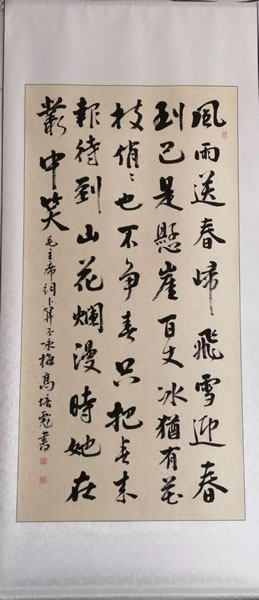 風雨送春归飛雪迎春
到已是懸崖百丈冰猶有花
枝俏〻也不争春只把春来
報待到山花爛漫時她在
叢中笑 毛主席詞卜算子咏梅 高培 書